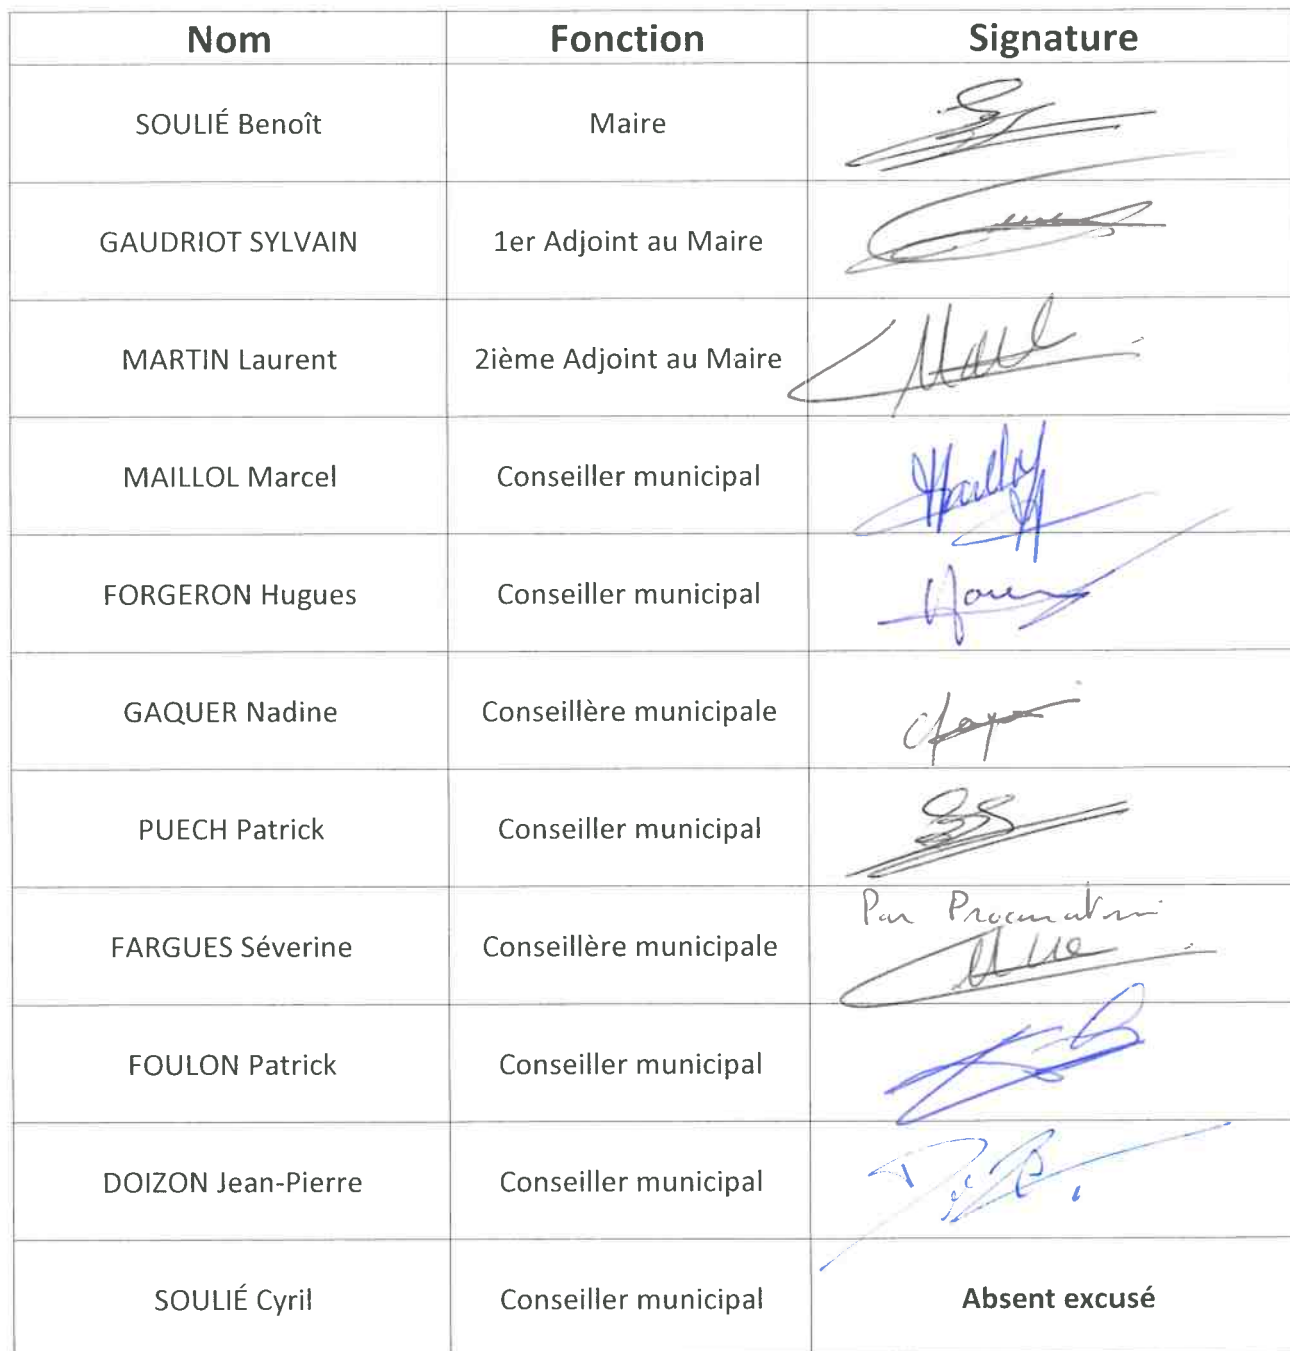 Nom Fonction Signature
SOULIÉ Benoît Maire
GAUDRIOT SYLVAIN 1er Adjoint au Maire
MARTIN Laurent 2ième Adjoint au Maire
MAILLOL Marcel Conseiller municipal
FORGERON Hugues Conseiller municipal
GAQUER Nadine Conseillère municipale
PUECH Patrick Conseiller municipal
Par Procuration
FARGUES Séverine Conseillère municipale
FOULON Patrick Conseiller municipal
DOIZON Jean-Pierre Conseiller municipal
SOULIÉ Cyril Conseiller municipal Absent excusé